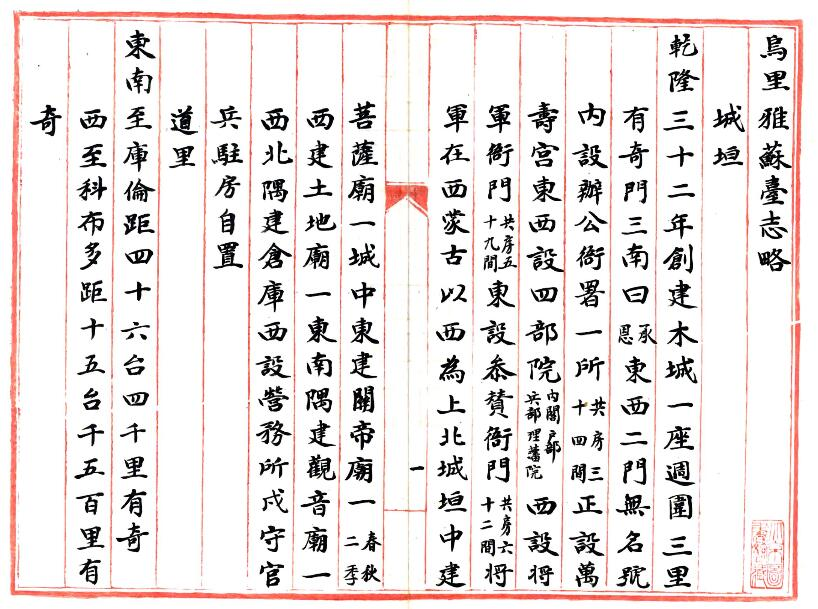 烏里雅蘇臺志略
城垣
乾隆三十二年創建木城一座週圍三里
有奇門三南曰承恩東西二門無名號
內設辦公衙署一所共房三十四間正設萬
壽宮東西設四部院內閣戶部兵部理藩院西設將
軍衙門共房五十九間東設叅贊衙門共房六十二間將
軍在西蒙古以西為上北城垣中建
一
菩薩廟一城中東建關帝廟一春秋二季
西建土地廟一東南隅建觀音廟一
西北隅建倉庫西設營務所戍守官
兵駐房自置
道里
東南至庫倫距四十六台四千里有奇
西至科布多距十五台千五百里有
奇